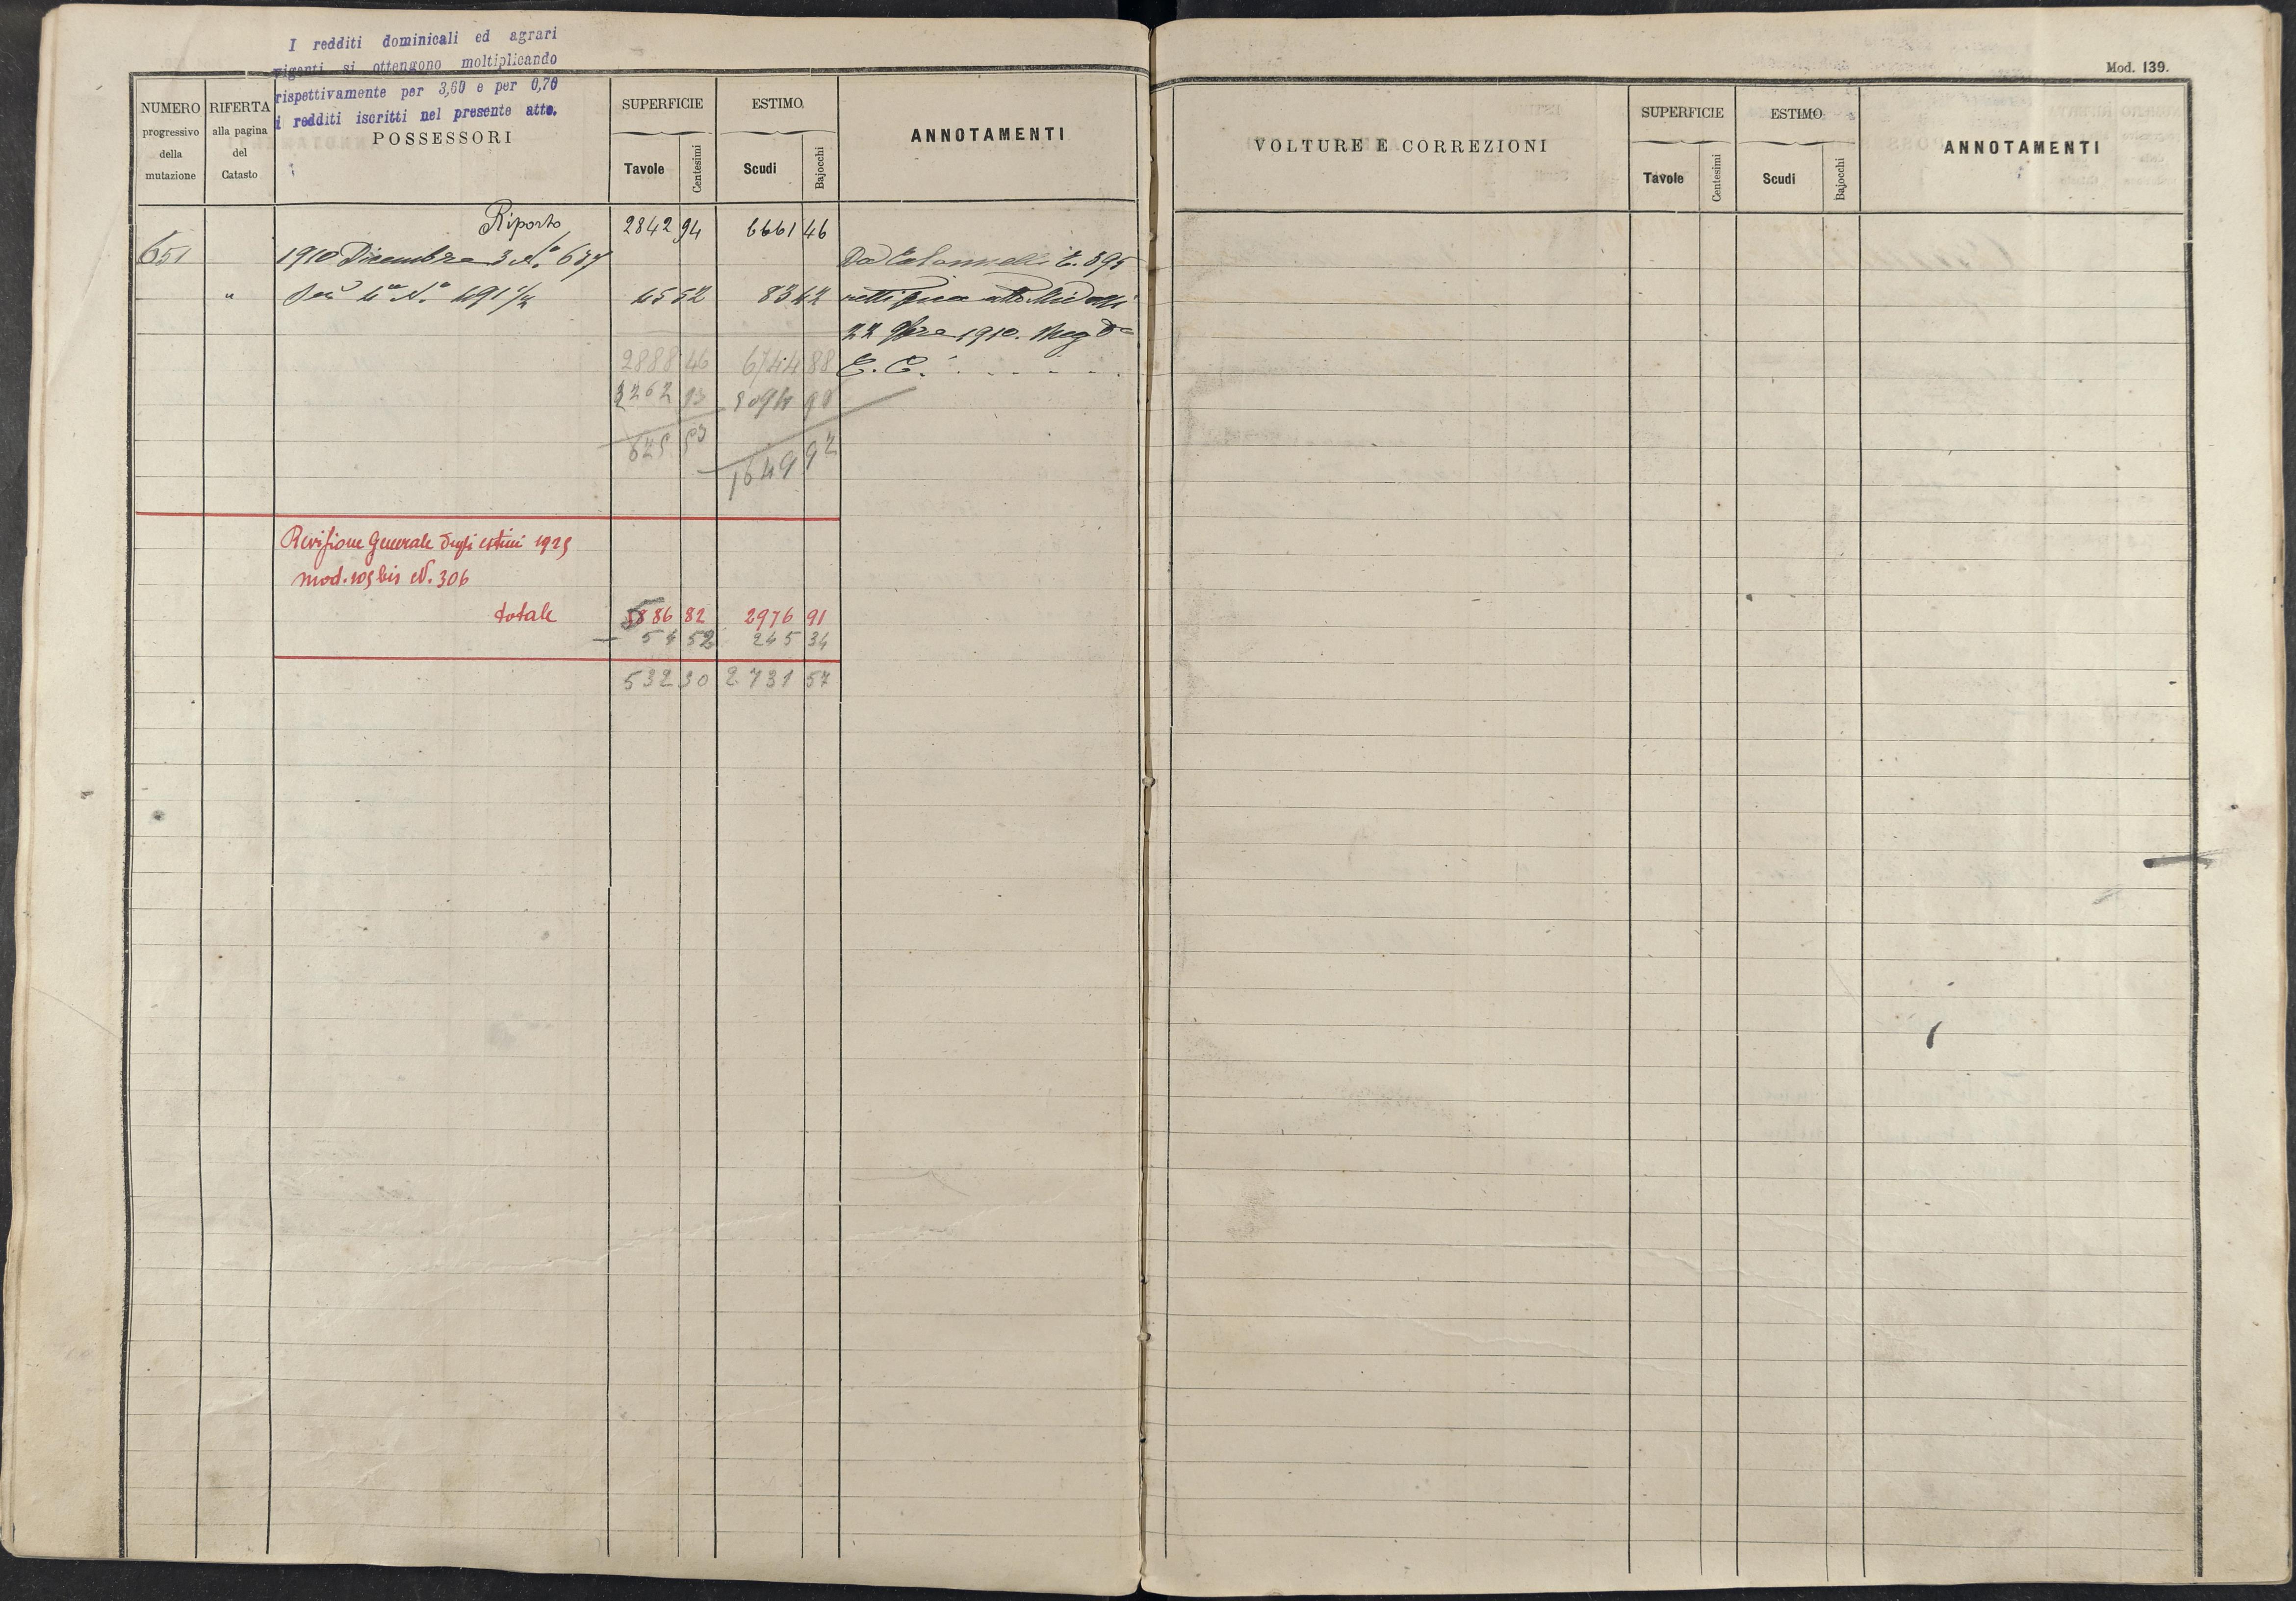 I redditi dominicali ed agrari
vigenti si ottengono moltiplicando
rispettivamente per 3,60 e per 0,70
i redditi iscritti nel presente atto.
NUMERO progressivo della mutazione
RIFERTA alla pagina del Catasto
POSSESSORI
SUPERFICIE
Tavole Centesimi
ESTIMO
Scudi Bajocchi
ANNOTAMENTI
Riporto 2842 94 6661 46
651 1910 Dicembre 3 N.o 637 E. 395
" N.o 491 1/2 45 52 83 42 rettifica atto
22 9bre 1910. Reg
2888 46 6744 88 E. C.
3262 93 5094 98
625 53
1649 92
Revisione Generale degli estimi 1925
mod. 105 bis N. 306
totale 5886 82 2976 91
54 52 245 34
532 30 2731 57
Mod. 139.
VOLTURE E CORREZIONI
SUPERFICIE
Tavole Centesimi
ESTIMO
Scudi Bajocchi
ANNOTAMENTI